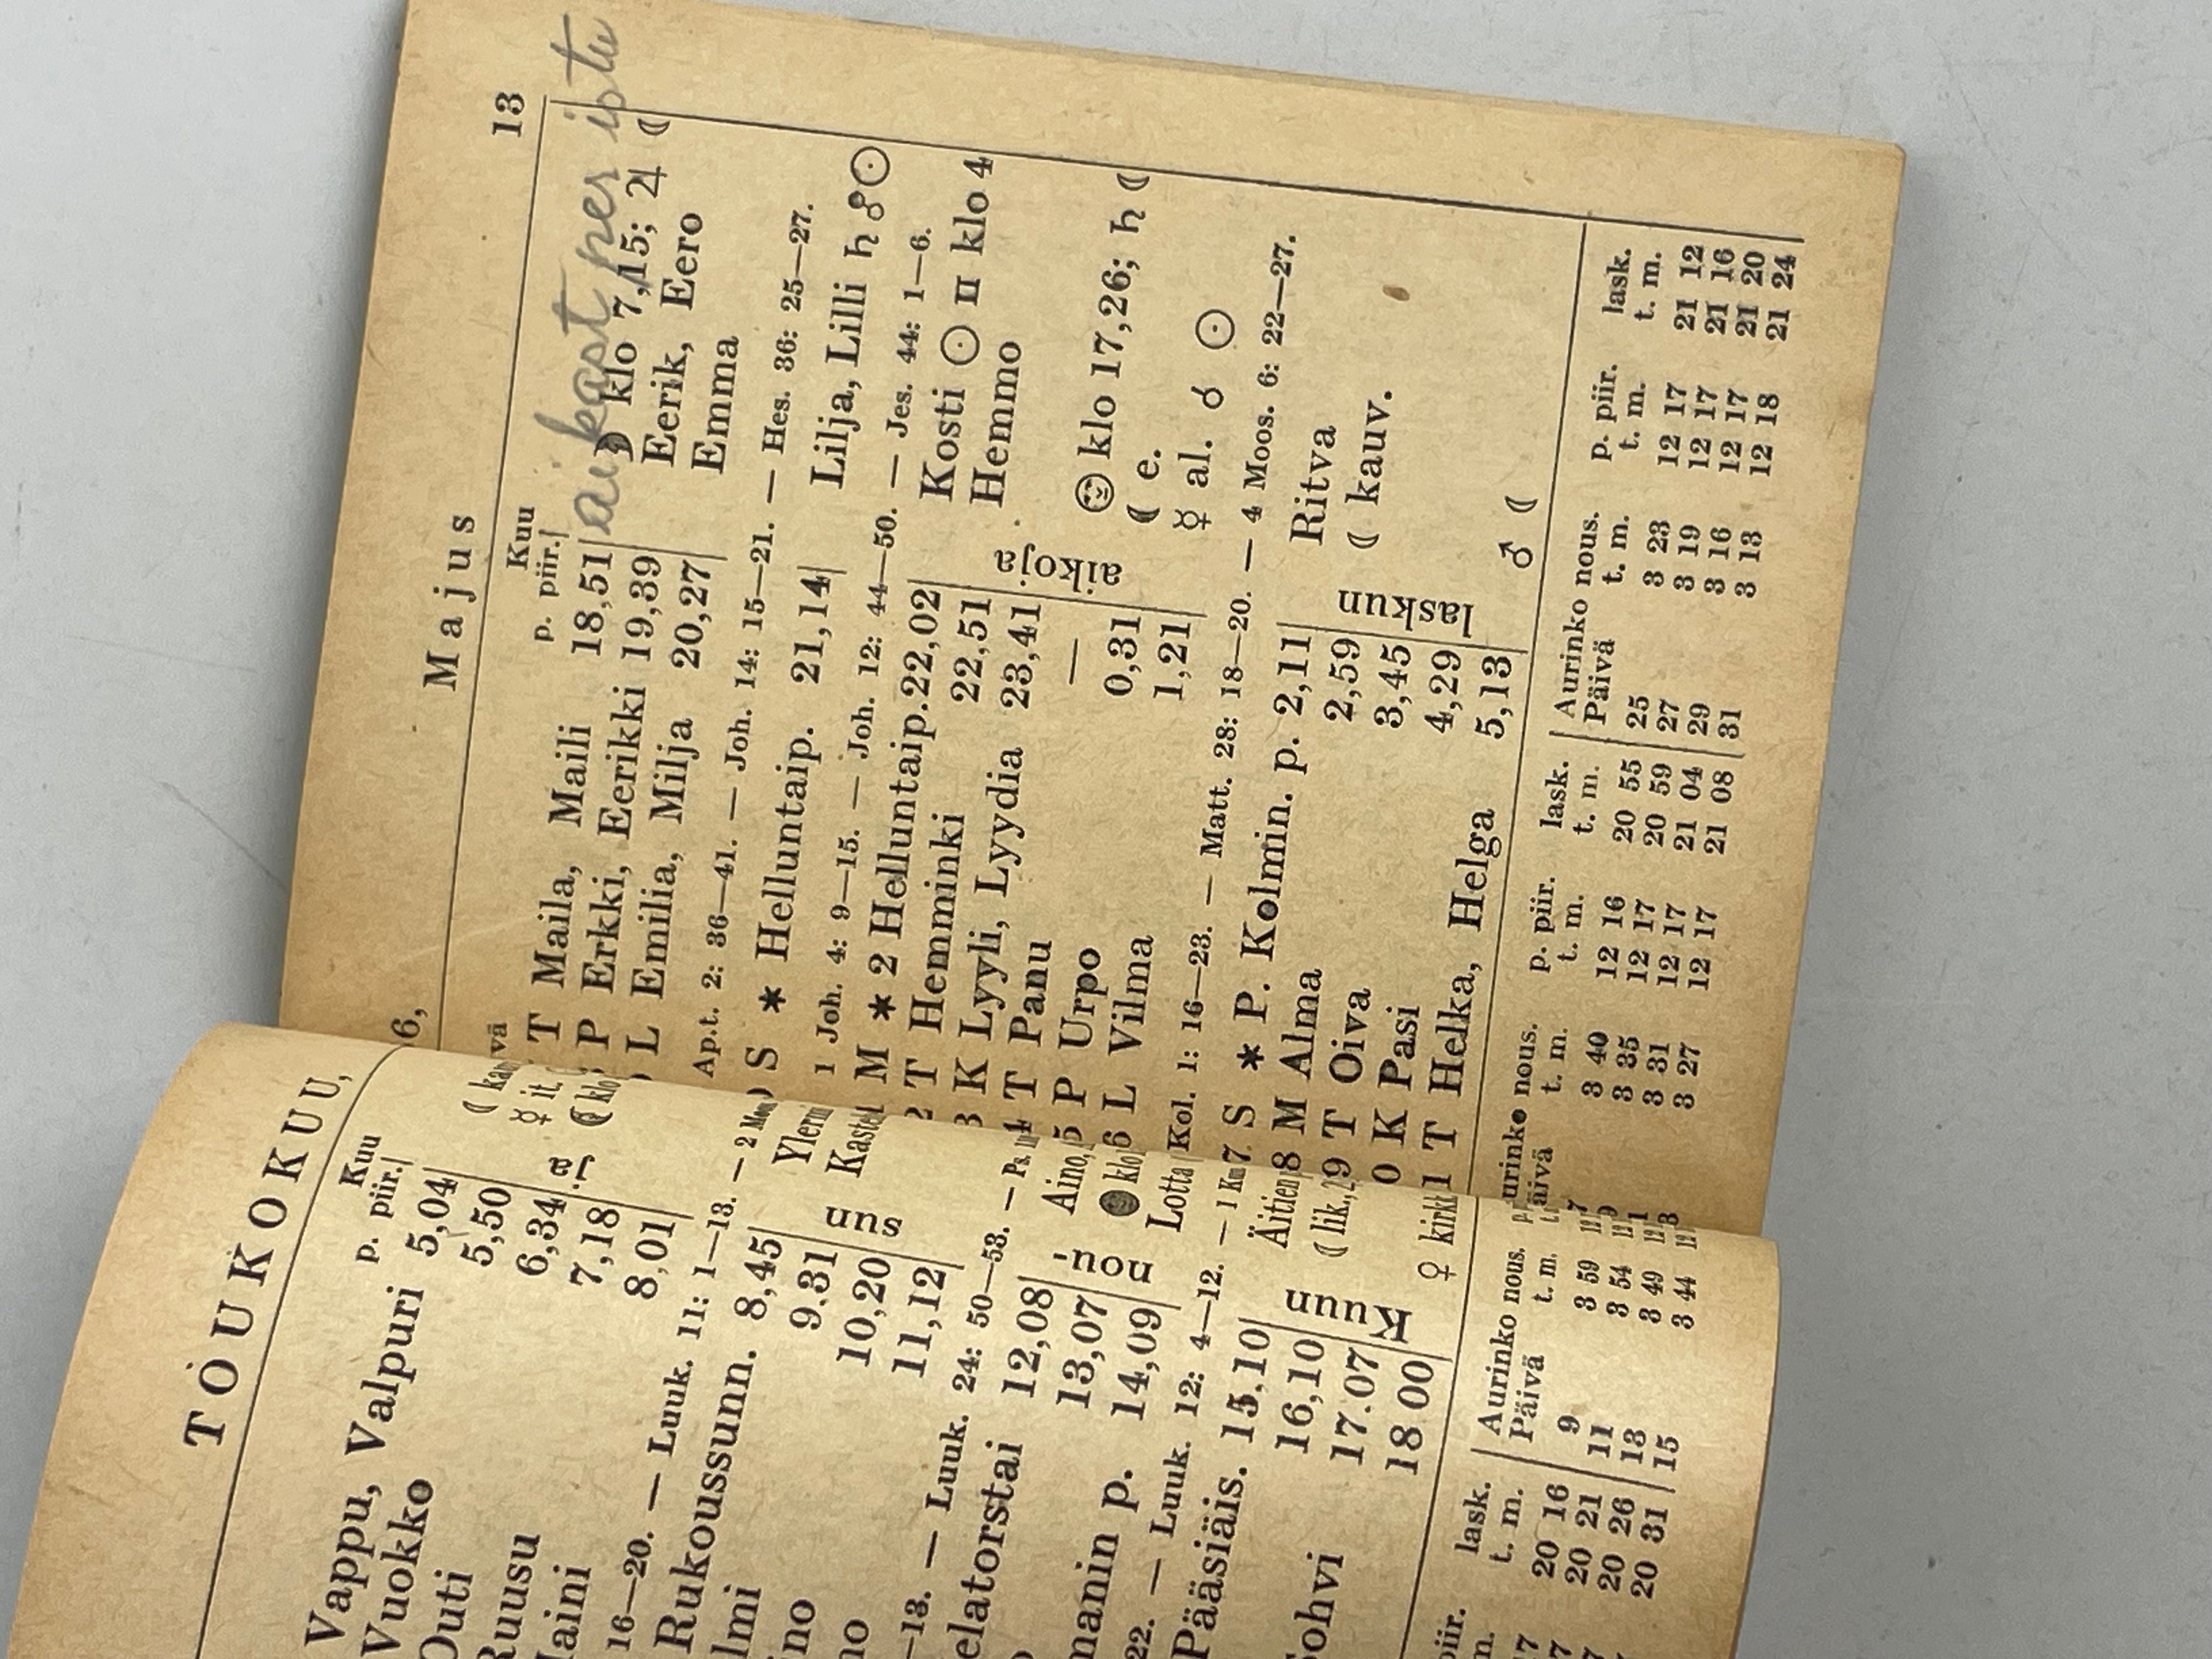 TOUKOKUU,
Kuu
p. piir.
Vappu, Valpuri 5,04
Vuokko 5,50
Outi 6,34
Ruusu 7,18
8,01
16—20. — Luuk. 11: 1—13. — 2
Rukoussunn. 8,45
9.31
10,20
11,12
sun
—13. — Luuk. 24: 50—53. — Ps.
elatorstai 12,08 Aino,
13,07 klo
manin p. 14,09 Lotta
nou-
22. — Luuk. 12: 4—12. — 1
Pääsiäis. 15,10 Äitien
16,10 ☾ lik.,
Sohvi 17.07
18 00 ♀ kirkk
Kuun
lask. Aurinko nous.
t. m. Päivä t. m.
20 16 9 3 59
20 21 11 3 54
20 26 13 3 49
20 31 15 3 44
6,
Majus 13
Kuu
p. piir.
ai kast per istu
T Maila, Maili 18,51 ☽ klo 7,15; ♃ ☾
P Erkki, Eerikki 19,39 Eerik, Eero
L Emilia, Milja 20,27 Emma
Ap.t. 2: 36—41. — Joh. 14: 15—21. — Hes. 36: 25—27.
S * Helluntaip. 21,14 Lilja, Lilli ♄ ☍ ☉
1 Joh. 4: 9—15. — Joh. 12: 44—50. — Jes. 44: 1—6.
M * 2 Helluntaip. 22,02 Kosti ☉ ♊ klo 4
2 T Hemminki 22,51 Hemmo
3 K Lyyli, Lyydia 23,41
4 T Panu —
5 P Urpo 0,31 klo 17,26; ♄ ☾
☾ e.
6 L Vilma 1,21 ☿ al. ☌ ☉
aikoja
Kol. 1: 16—23. — Matt. 28: 18—20. — 4 Moos. 6: 22—27.
7 S * P. Kolmin. p. 2,11 Ritva
8 M Alma 2,59 ☾ kauv.
9 T Oiva 3,45
0 K Pasi 4,29
1 T Helka, Helga 5,13 ♂ ☾
laskun
nous. p. piir. lask. Aurinko nous. p. piir. lask.
t. m. t. m. t. m. Päivä t. m. t. m. t. m.
3 40 12 16 20 55 25 3 23 12 17 21 12
3 35 12 17 20 59 27 3 19 12 17 21 16
3 31 12 17 21 04 29 3 16 12 17 21 20
3 27 12 17 21 08 31 3 13 12 18 21 24